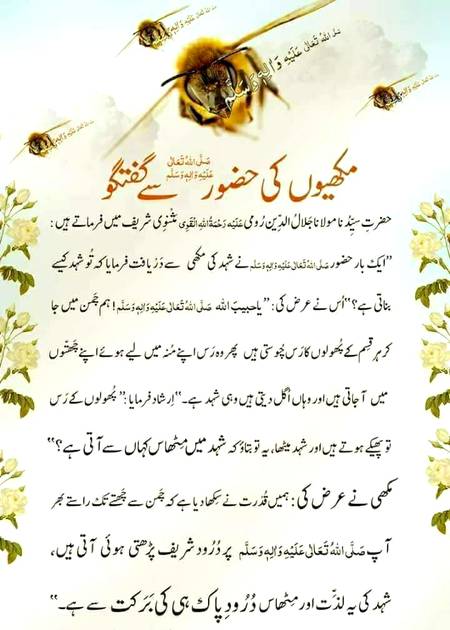 صلی اللہ تعالیٰ علیہ واٰلہٖ وسلم
مکھیوں کی حضور صَلَّی اللہُ تَعَالٰی عَلَیْہِ وَاٰلِہٖ وَسَلَّم سے گفتگو
حضرتِ سیِّدنا مولانا جلالُ الدّین رُومی عَلَیْہِ رَحْمَۃُ اللہِ الْقَوِی مَثنوی شریف میں فرماتے ہیں :
”ایک بار حضور صَلَّی اللہُ تَعَالٰی عَلَیْہِ وَاٰلِہٖ وَسَلَّم نے شہد کی مکھی سے دَریافت فرمایا کہ تُو شہد کیسے
بناتی ہے؟“ اُس نے عرض کی: ”یاحبیبَ اللہ صَلَّی اللہُ تَعَالٰی عَلَیْہِ وَاٰلِہٖ وَسَلَّم! ہم چَمن میں جا
کر ہر قِسم کے پُھولوں کا رَس چُوستی ہیں پھر وہ رَس اپنے مُنہ میں لیے ہوئے اپنے چَھتّوں
میں آ جاتی ہیں اور وہاں اُگل دیتی ہیں وہی شہد ہے۔“ اِرشاد فرمایا: ”پُھولوں کے رَس
تو پھیکے ہوتے ہیں اور شہد میٹھا، یہ تو بتاؤ کہ شہد میں مِٹھاس کہاں سے آتی ہے؟“
مکھی نے عرض کی: ہمیں قُدرت نے سِکھا دیا ہے کہ چَمن سے چَھتّے تک راستے بھر
آپ صَلَّی اللہُ تَعَالٰی عَلَیْہِ وَاٰلِہٖ وَسَلَّم پر دُرُود شریف پڑھتی ہوئی آتی ہیں،
شہد کی یہ لذّت اور مِٹھاس دُرُودِ پاک ہی کی بَرَکت سے ہے۔“